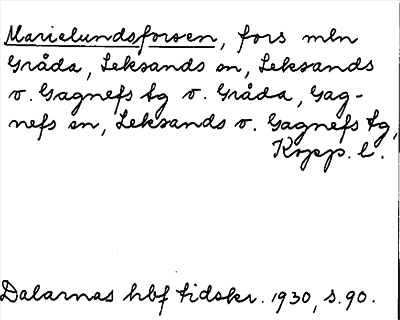 Marielundsforsen, fors mln
Gråda, Leksands sn, Leksands
o. Gagnefs tg o. Gråda, Gag-
nefs sn, Leksands o. Gagnefs tg,
Kopp. l.
Dalarnas hbf tidskr. 1930, s. 90.